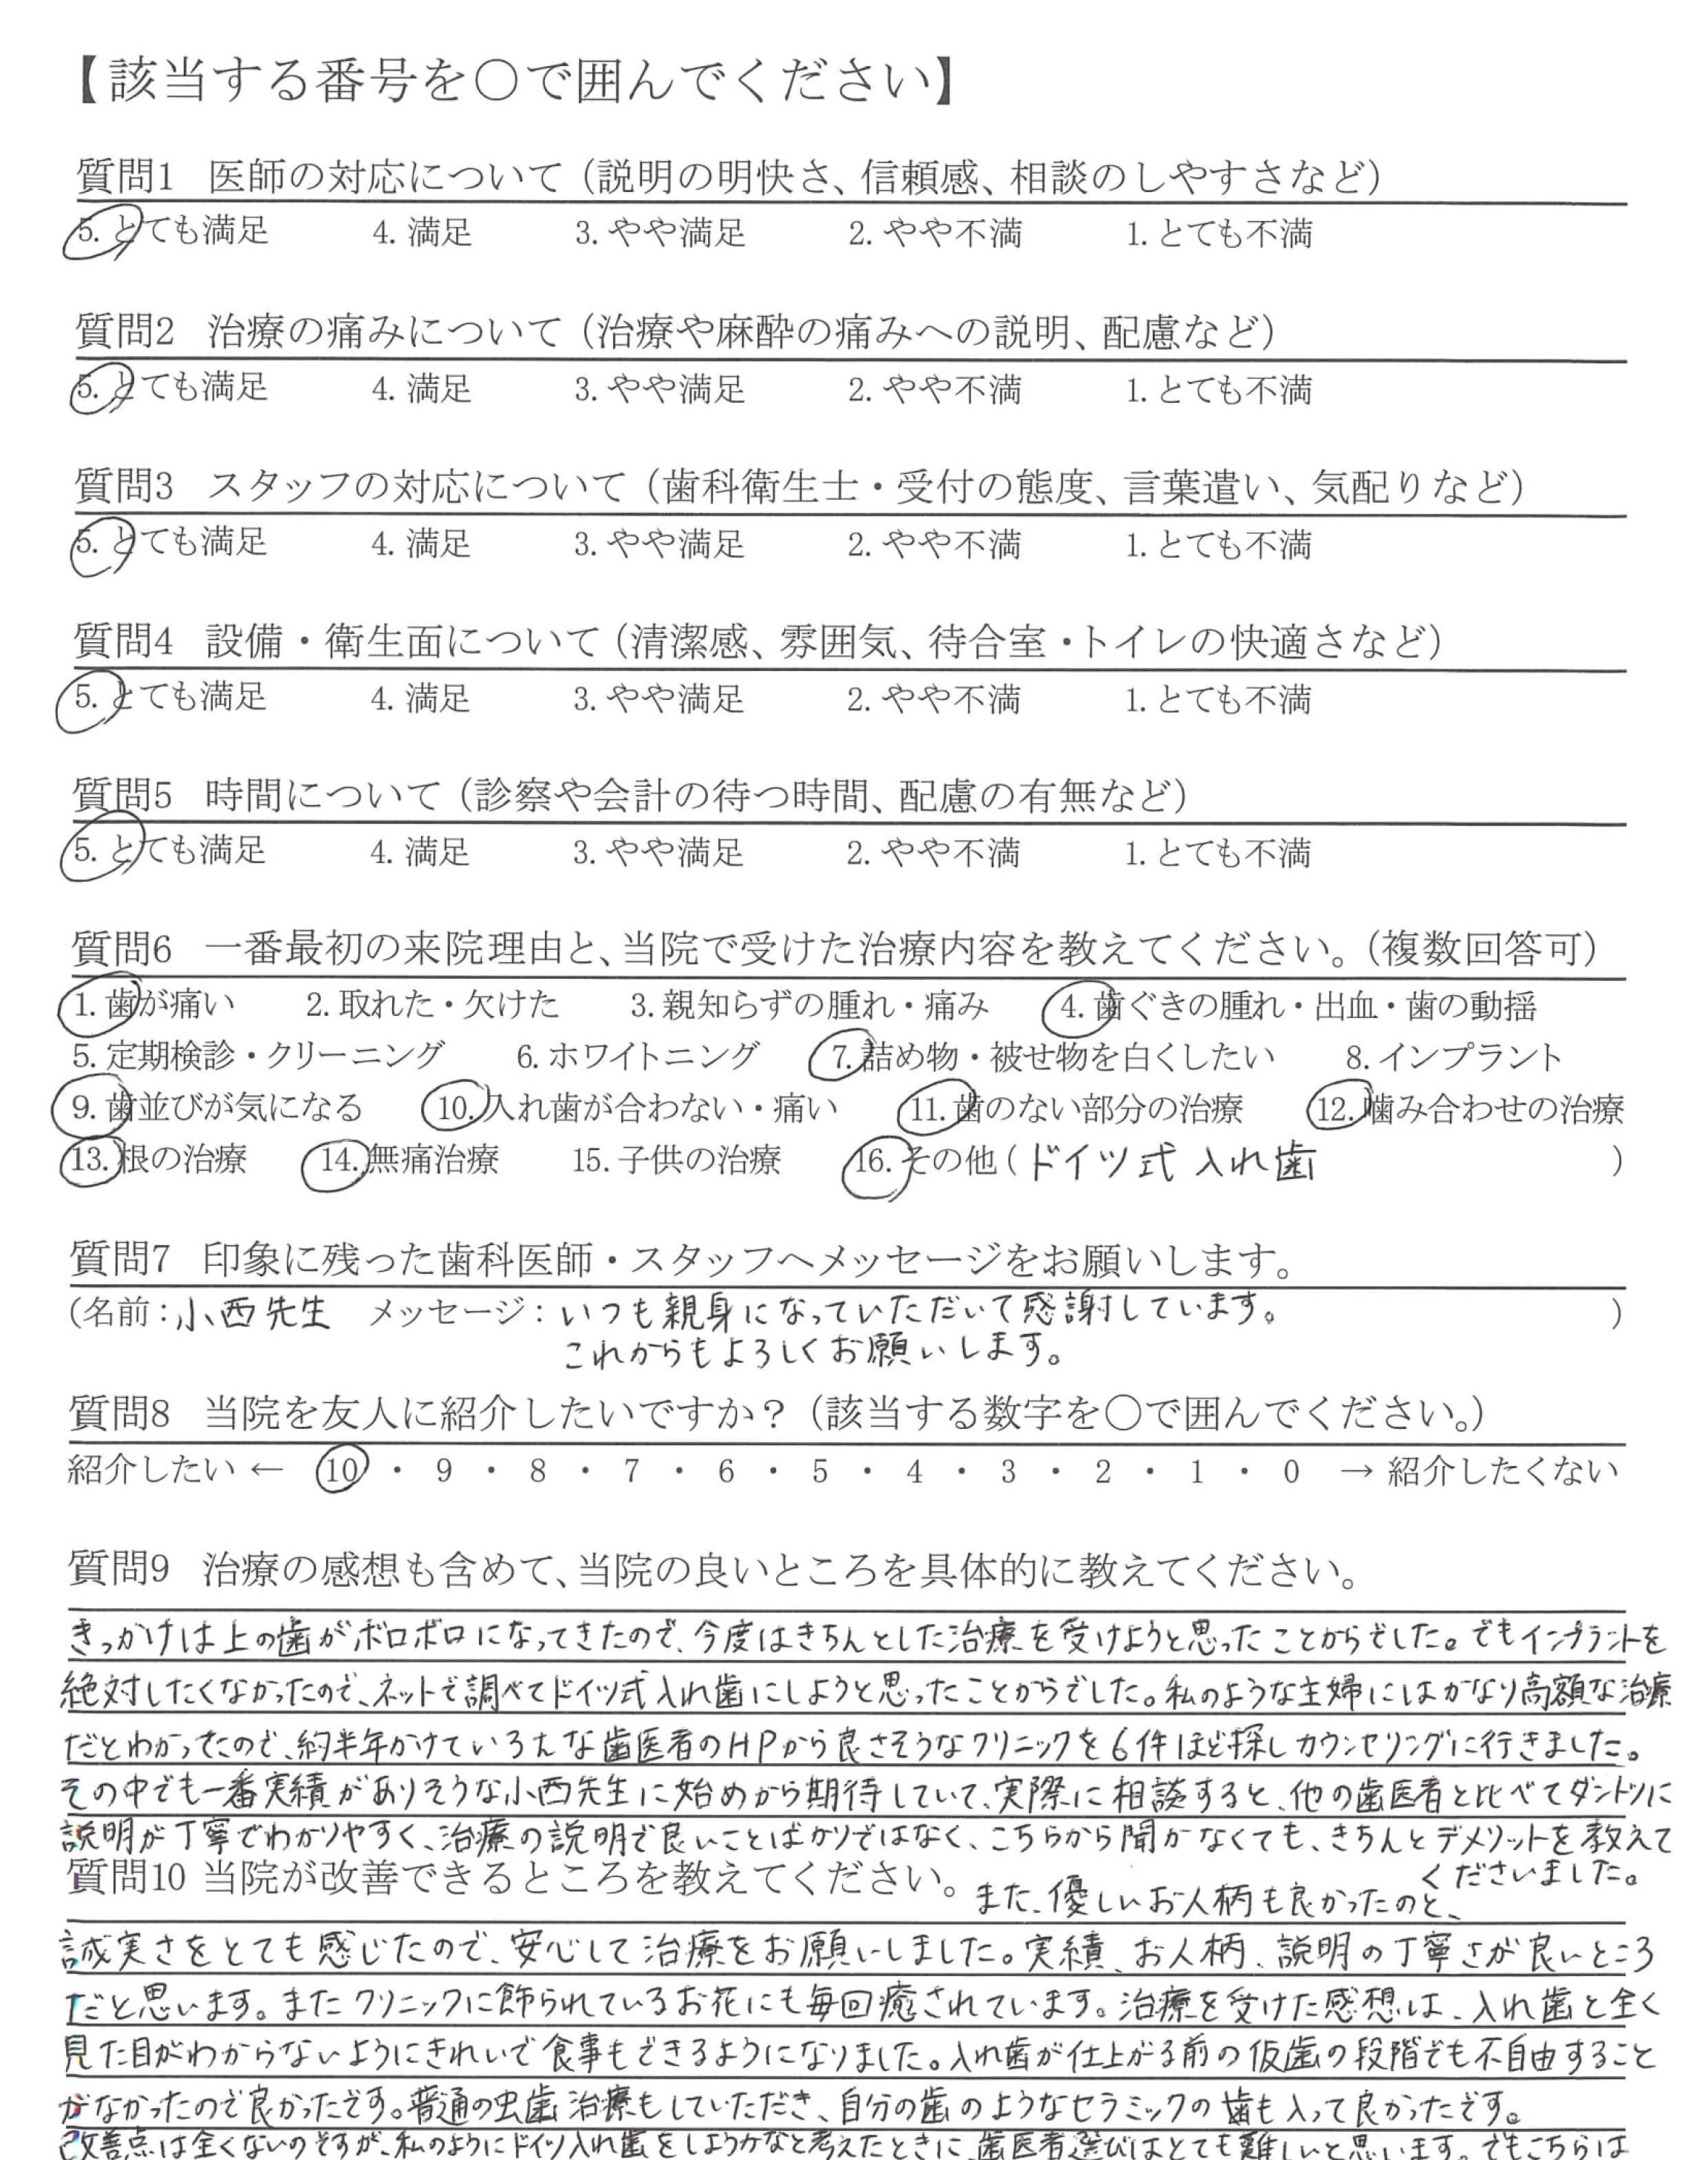 【該当する番号を○で囲んでください】
質問1 医師の対応について（説明の明快さ、信頼感、相談のしやすさなど）
5. とても満足 4. 満足 3. やや満足 2. やや不満 1. とても不満
質問2 治療の痛みについて（治療や麻酔の痛みへの説明、配慮など）
5. とても満足 4. 満足 3. やや満足 2. やや不満 1. とても不満
質問3 スタッフの対応について（歯科衛生士・受付の態度、言葉遣い、気配りなど）
5. とても満足 4. 満足 3. やや満足 2. やや不満 1. とても不満
質問4 設備・衛生面について（清潔感、雰囲気、待合室・トイレの快適さなど）
5. とても満足 4. 満足 3. やや満足 2. やや不満 1. とても不満
質問5 時間について（診察や会計の待つ時間、配慮の有無など）
5. とても満足 4. 満足 3. やや満足 2. やや不満 1. とても不満
質問6 一番最初の来院理由と、当院で受けた治療内容を教えてください。（複数回答可）
1. 歯が痛い 2. 取れた・欠けた 3. 親知らずの腫れ・痛み 4. 歯ぐきの腫れ・出血・歯の動揺
5. 定期検診・クリーニング 6. ホワイトニング 7. 詰め物・被せ物を白くしたい 8. インプラント
9. 歯並びが気になる 10. 入れ歯が合わない・痛い 11. 歯のない部分の治療 12. 噛み合わせの治療
13. 根の治療 14. 無痛治療 15. 子供の治療 16. その他（ドイツ式 入れ歯 ）
質問7 印象に残った歯科医師・スタッフへメッセージをお願いします。
（名前：小西先生 メッセージ：いつも親身になっていただいて感謝しています。 ）
これからもよろしくお願いします。
質問8 当院を友人に紹介したいですか？（該当する数字を○で囲んでください。）
紹介したい ← 10 ・ 9 ・ 8 ・ 7 ・ 6 ・ 5 ・ 4 ・ 3 ・ 2 ・ 1 ・ 0 → 紹介したくない
質問9 治療の感想も含めて、当院の良いところを具体的に教えてください。
きっかけは上の歯がボロボロになってきたので、今度はきちんとした治療を受けようと思ったことからでした。でもインプラントを
絶対したくなかったので、ネットで調べてドイツ式入れ歯にしようと思ったことからでした。私のような主婦にはかなり高額な治療
だとわかったので、約半年かけていろんな歯医者のHPから良さそうなクリニックを6件ほど探しカウンセリングに行きました。
その中でも一番実績がありそうな小西先生に始めから期待していて、実際に相談すると、他の歯医者と比べてダントツに
説明が丁寧でわかりやすく、治療の説明で良いことばかりではなく、こちらから聞かなくても、きちんとデメリットを教えて
くださいました。
質問10 当院が改善できるところを教えてください。
また、優しいお人柄も良かったのと、
誠実さをとても感じたので、安心して治療をお願いしました。実績、お人柄、説明の丁寧さが良いところ
だと思います。またクリニックに飾られているお花にも毎回癒されています。治療を受けた感想は、入れ歯と全く
見た目がわからないようにきれいで食事もできるようになりました。入れ歯が仕上がる前の仮歯の段階でも不自由すること
がなかったので良かったです。普通の虫歯治療もしていただき、自分の歯のようなセラミックの歯も入って良かったです。
改善点は全くないのですが、私のようにドイツ入れ歯をしようかなと考えたときに、歯医者選びはとても難しいと思います。でもこちらは